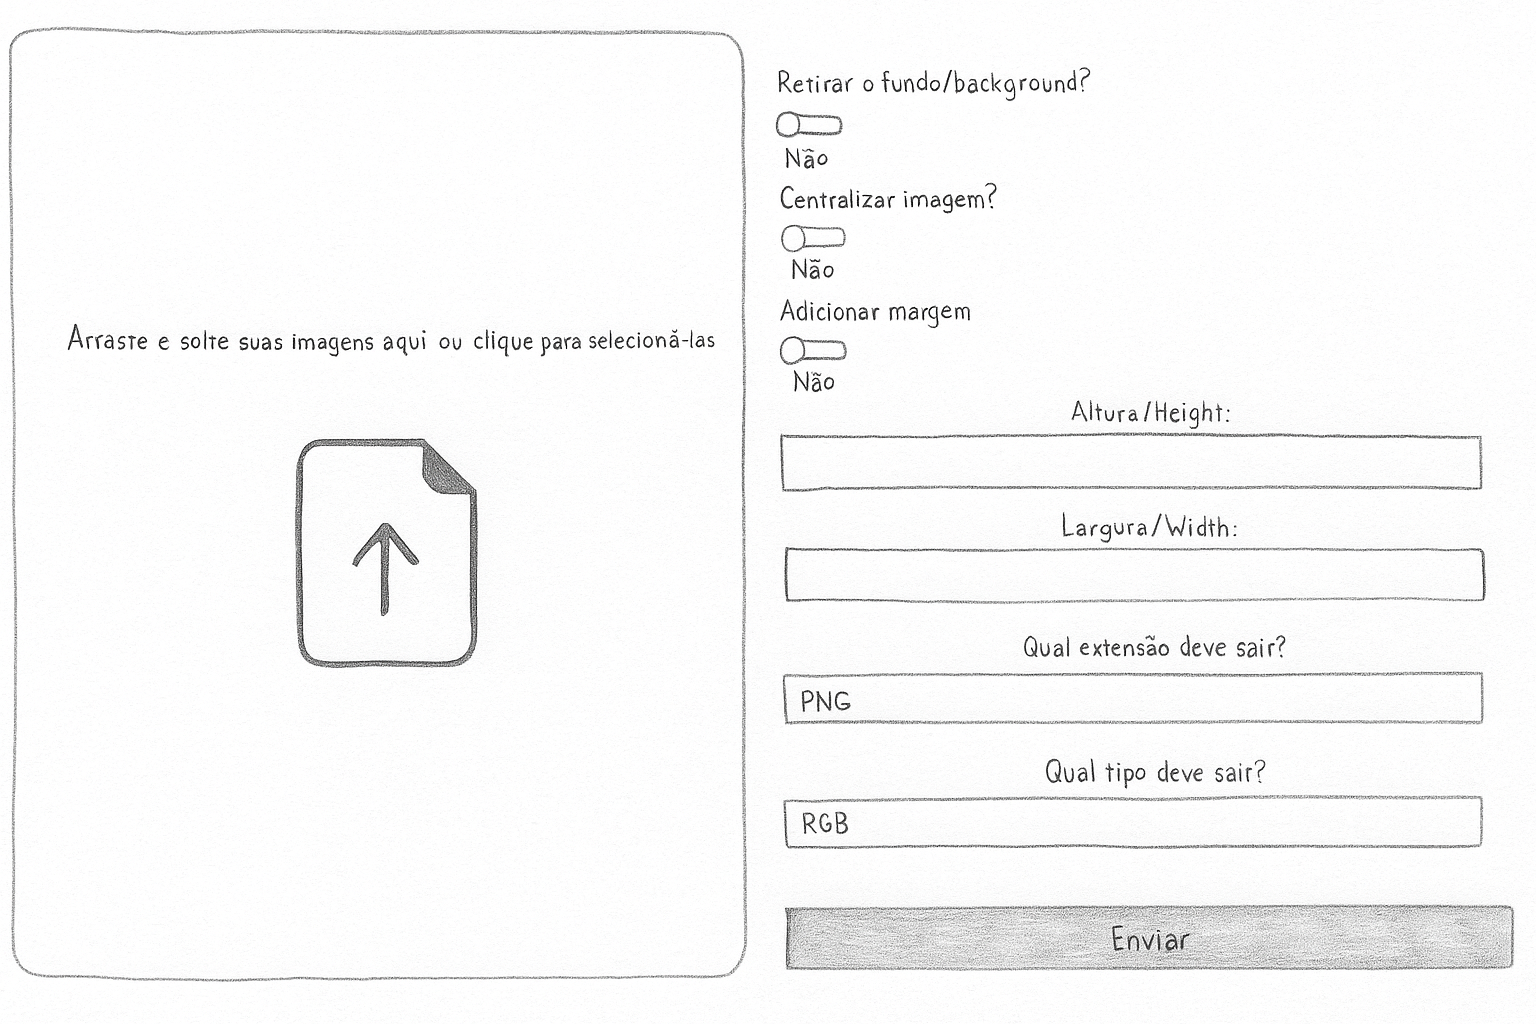 Arraste e solte suas imagens aqui ou clique para selecionã-las
Retirar o fundo/background?
Não
Centralizar imagem?
Não
Adicionar margem
Não
Altura/Height:
Largura/Width:
Qual extensão deve sair?
PNG
Qual tipo deve sair?
RGB
Enviar